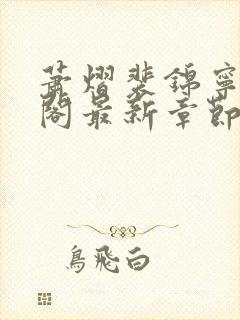 萧熠裴锦宁
阁最新章节
鸟飞白